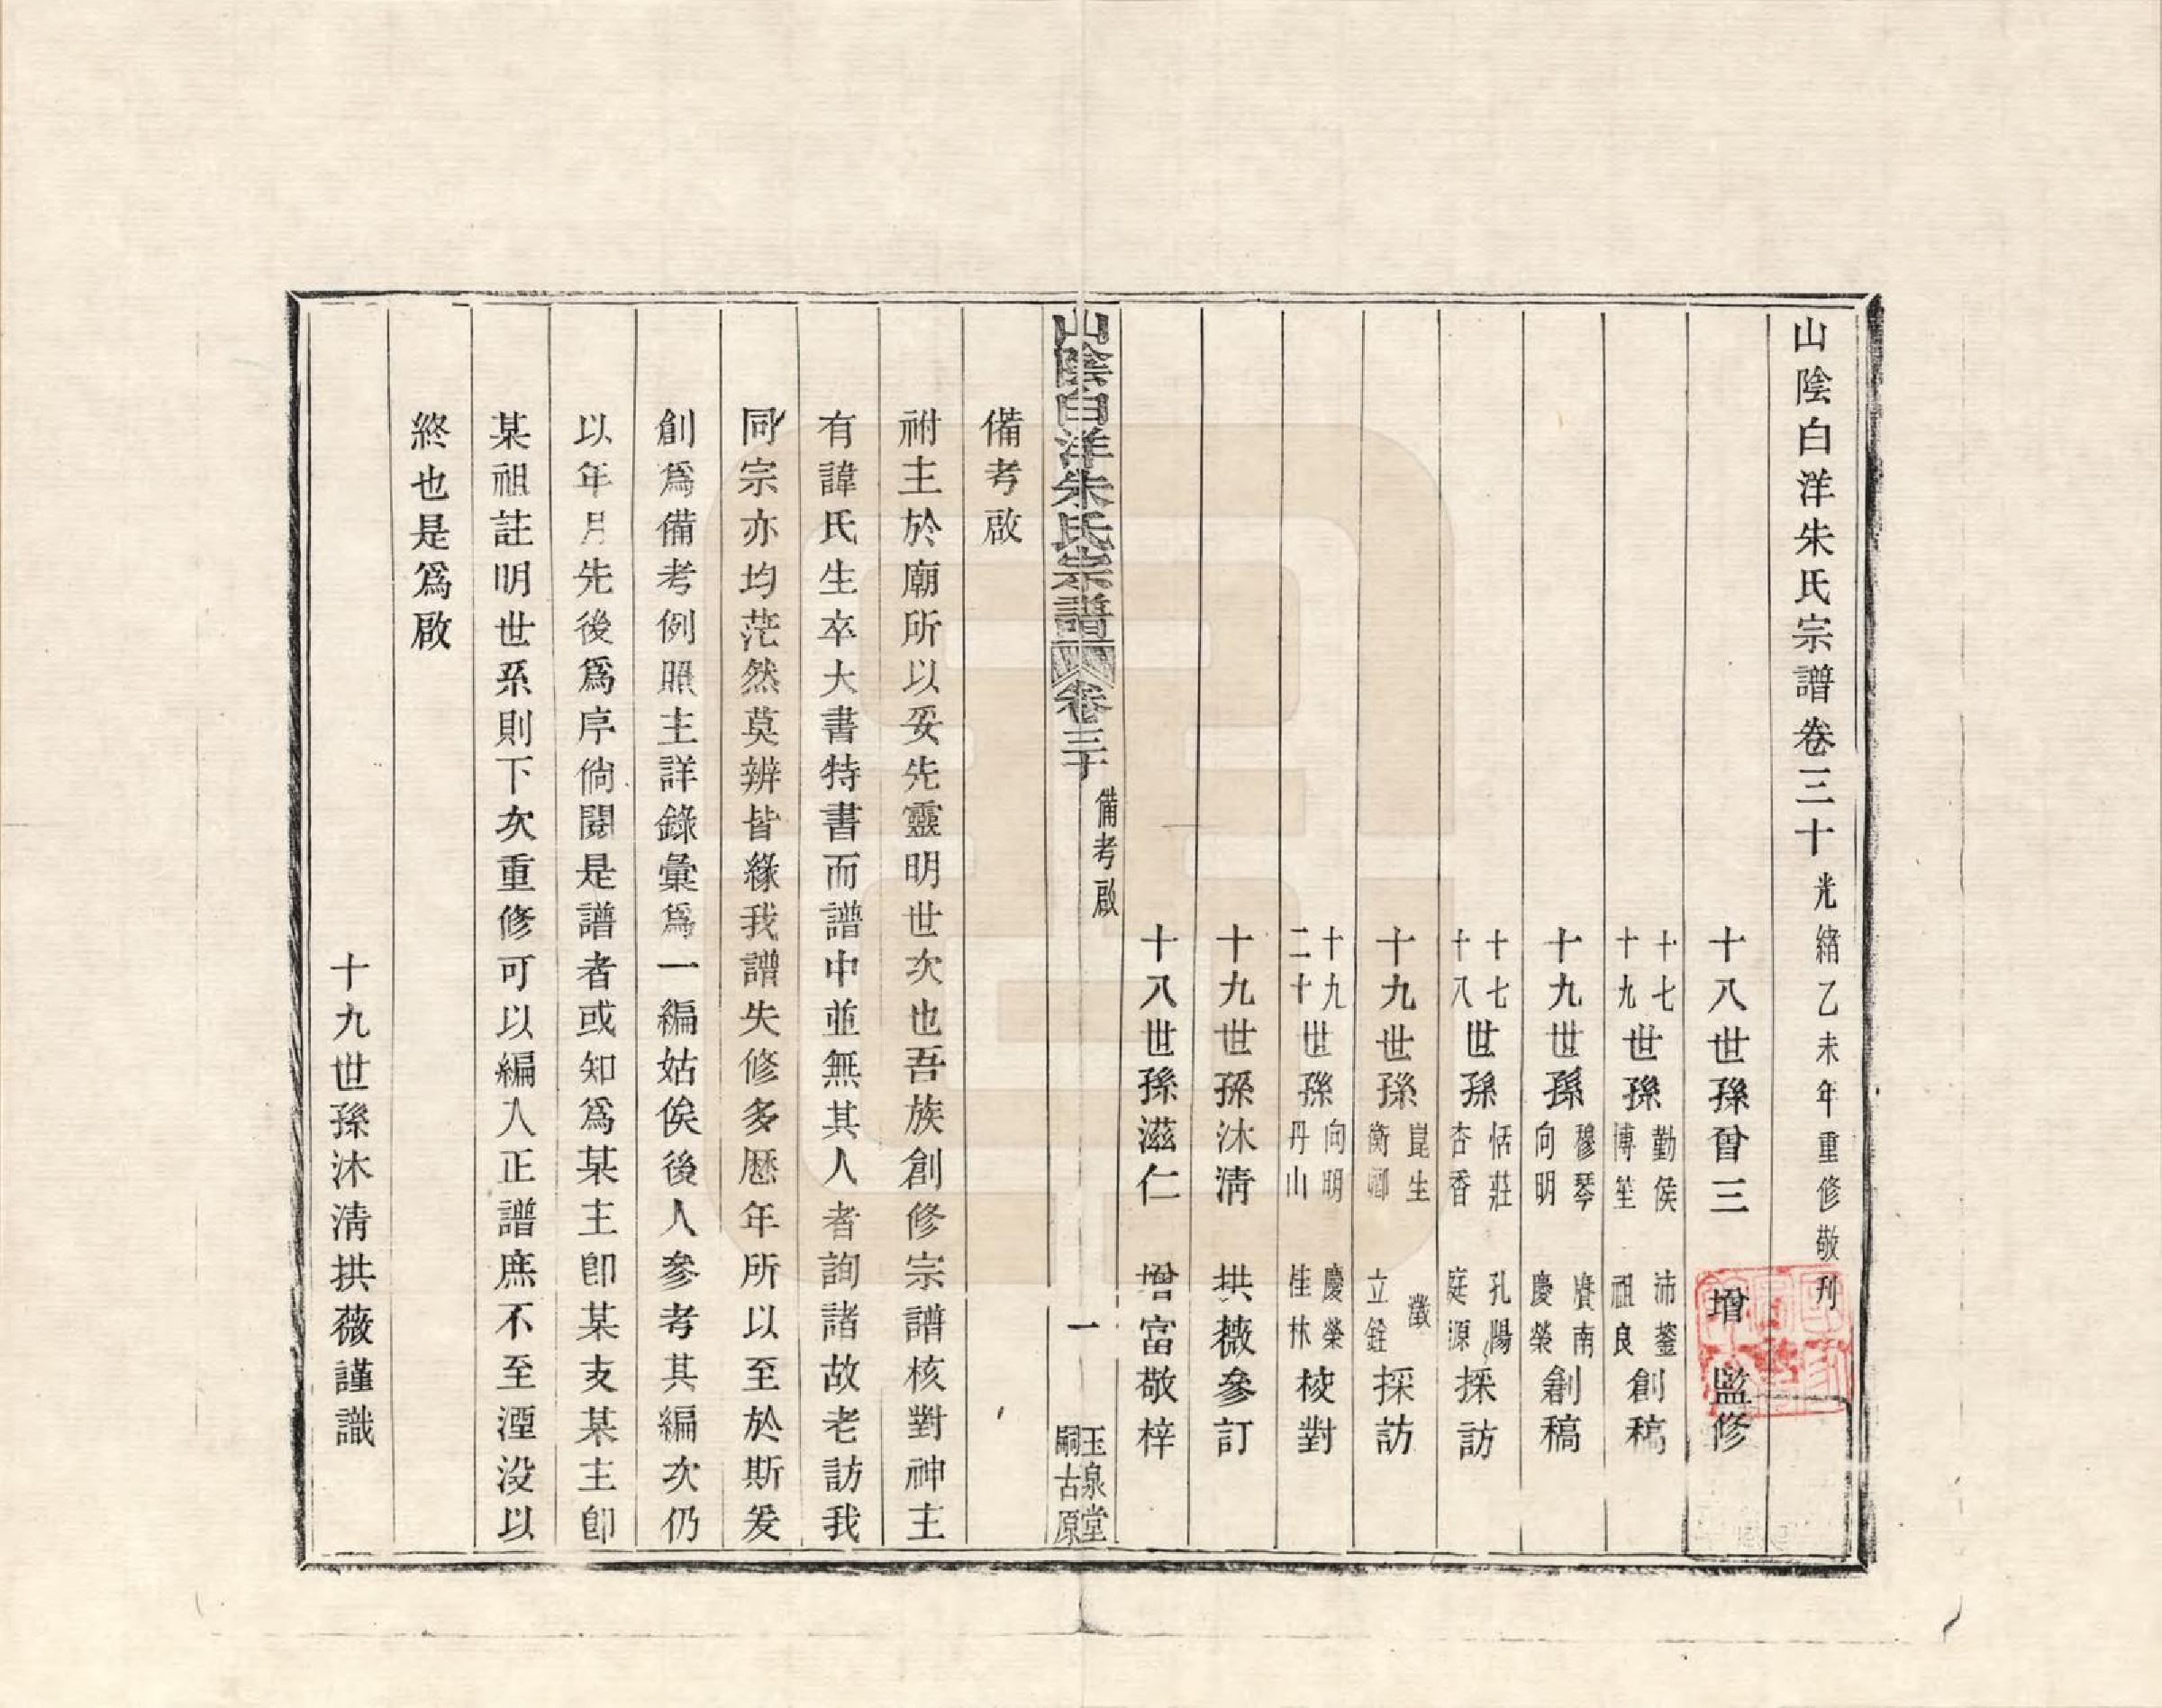 山陰白洋朱氏宗譜卷三十 光緒乙未年重修敬刊
十八世孫曾三 增 監修
十七 十九 世孫 勤侯 博笙 沛鋆 祖良 創稿
十九世孫 穆琴 向明 賡南 慶榮 創稿
十七 十八 世孫 恬莊 杏香 孔陽 庭源 採訪
十九世孫 崑生 衡卿 瀓 立銓 採訪
十九 二十 世孫 向明 丹山 慶榮 佳林 校對
十九世孫沐清 拱薇參訂
十八世孫滋仁 增富敬梓
山陰白洋朱氏宗譜 卷三十 備考啟 一 玉泉堂 嗣古原
備考啟
祔主於廟所以妥先靈明世次也吾族創修宗譜核對神主
有諱氏生卒大書特書而譜中並無其人者詢諸故老訪我
同宗亦均茫然莫辨皆緣我譜失修多歷年所以至於斯爰
創爲備考例照主詳錄彙爲一編姑俟後人參考其編次仍
以年月先後爲序倘閱是譜者或知爲某主卽某支某主卽
某祖註明世系則下次重修可以編入正譜庶不至湮没以
終也是爲啟
十九世孫沐清拱薇謹識